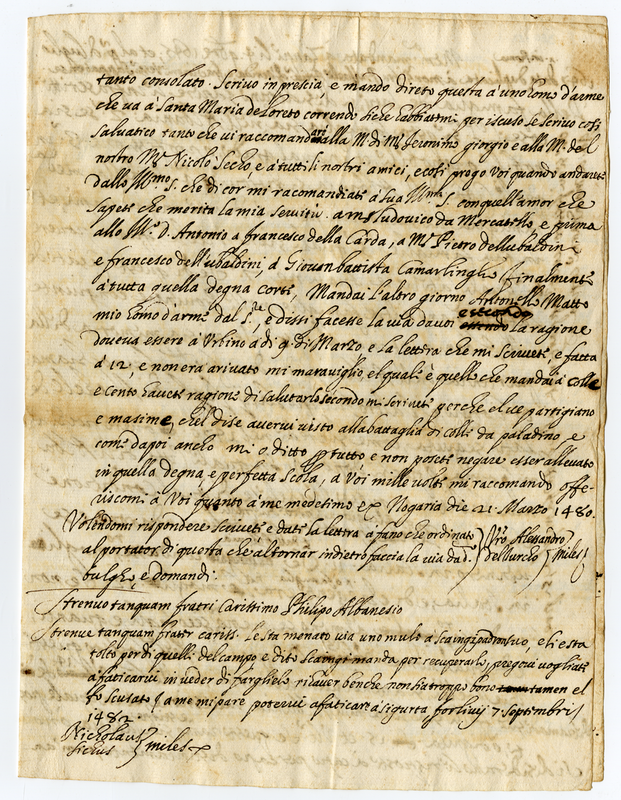 tanto consolato. Scrivo in prescia, e mando direto questa à uno homo d'arme
che va à Santa Maria de Loreto correndo siche habbiatimi per iscuso se scrivo cosi
salvatico tanto che vi raccomandari alla M. di Mr. Jeronimo giorgio e alla M. del
nostro Mr. Nicolo Secho, e à tutti li nostri amici, e cosi prego voi quando andarete
dallo Illmo. S. che di cor mi racomandiate à sua Illma. S. con quell'amor che
sapete che merita la mia servitu. a ms Ludovico da Mercatello, e prima
allo M. D. Antonio e francesco della Carda, a Mr. Pietro dell ubaldini
e francesco dell'ubaldini, à Giovanbattista Camarlingho, finalmente
à tutta quella degna corte, Mandai l'altro giorno Antonello Matto
mio homo d'arme dal S.re, e dissi facesse la via da voi essendo la ragione
doveva essere à Urbino à di 9 di Marzo e la lettera che mi scrivete, è fatta
à 12, e non era arivato mi maraviglio el quale è quello che mandai à Colle
e Cento havete ragione di salutarlo secondo mi scrivete perche el ve partigiano
e masime, chel dise avervi visto alla battaglia di Colle da paladino, e
come dapoi ancho mi o ditto p tutto e non posete negare esser allevato
in quella degna e perfetta scola, a Voi mille volte mi raccomando offe-
riscomi à Voi quanto à me medetimo ex Nogaria die 21. Marzo 1480.
Volendomi rispondere scrivete e date la lettera à fano che ordinato
al portator di questa che al tornar indietro faccia la via da
bulgh, e domandi.
Vro. Alessandro
dell'urcho } miles
Strenuo tanquam fratri Carissimo Philipo Albanesio
Strenue tanquam frater cariss. Le sta menato via uno mulo a padron suo, e li e sta
tolto per di quelli del campo e dito manda per recuperarlo, pregovi vogliate
afaticarvi in veder di farglielo rihaver benche non sia troppo bono tamen el
fo scusato, a me mi pare potervi afaticare à sigurta forlivij 7. Septembris
1482.
Nicholaus
sichus } miles